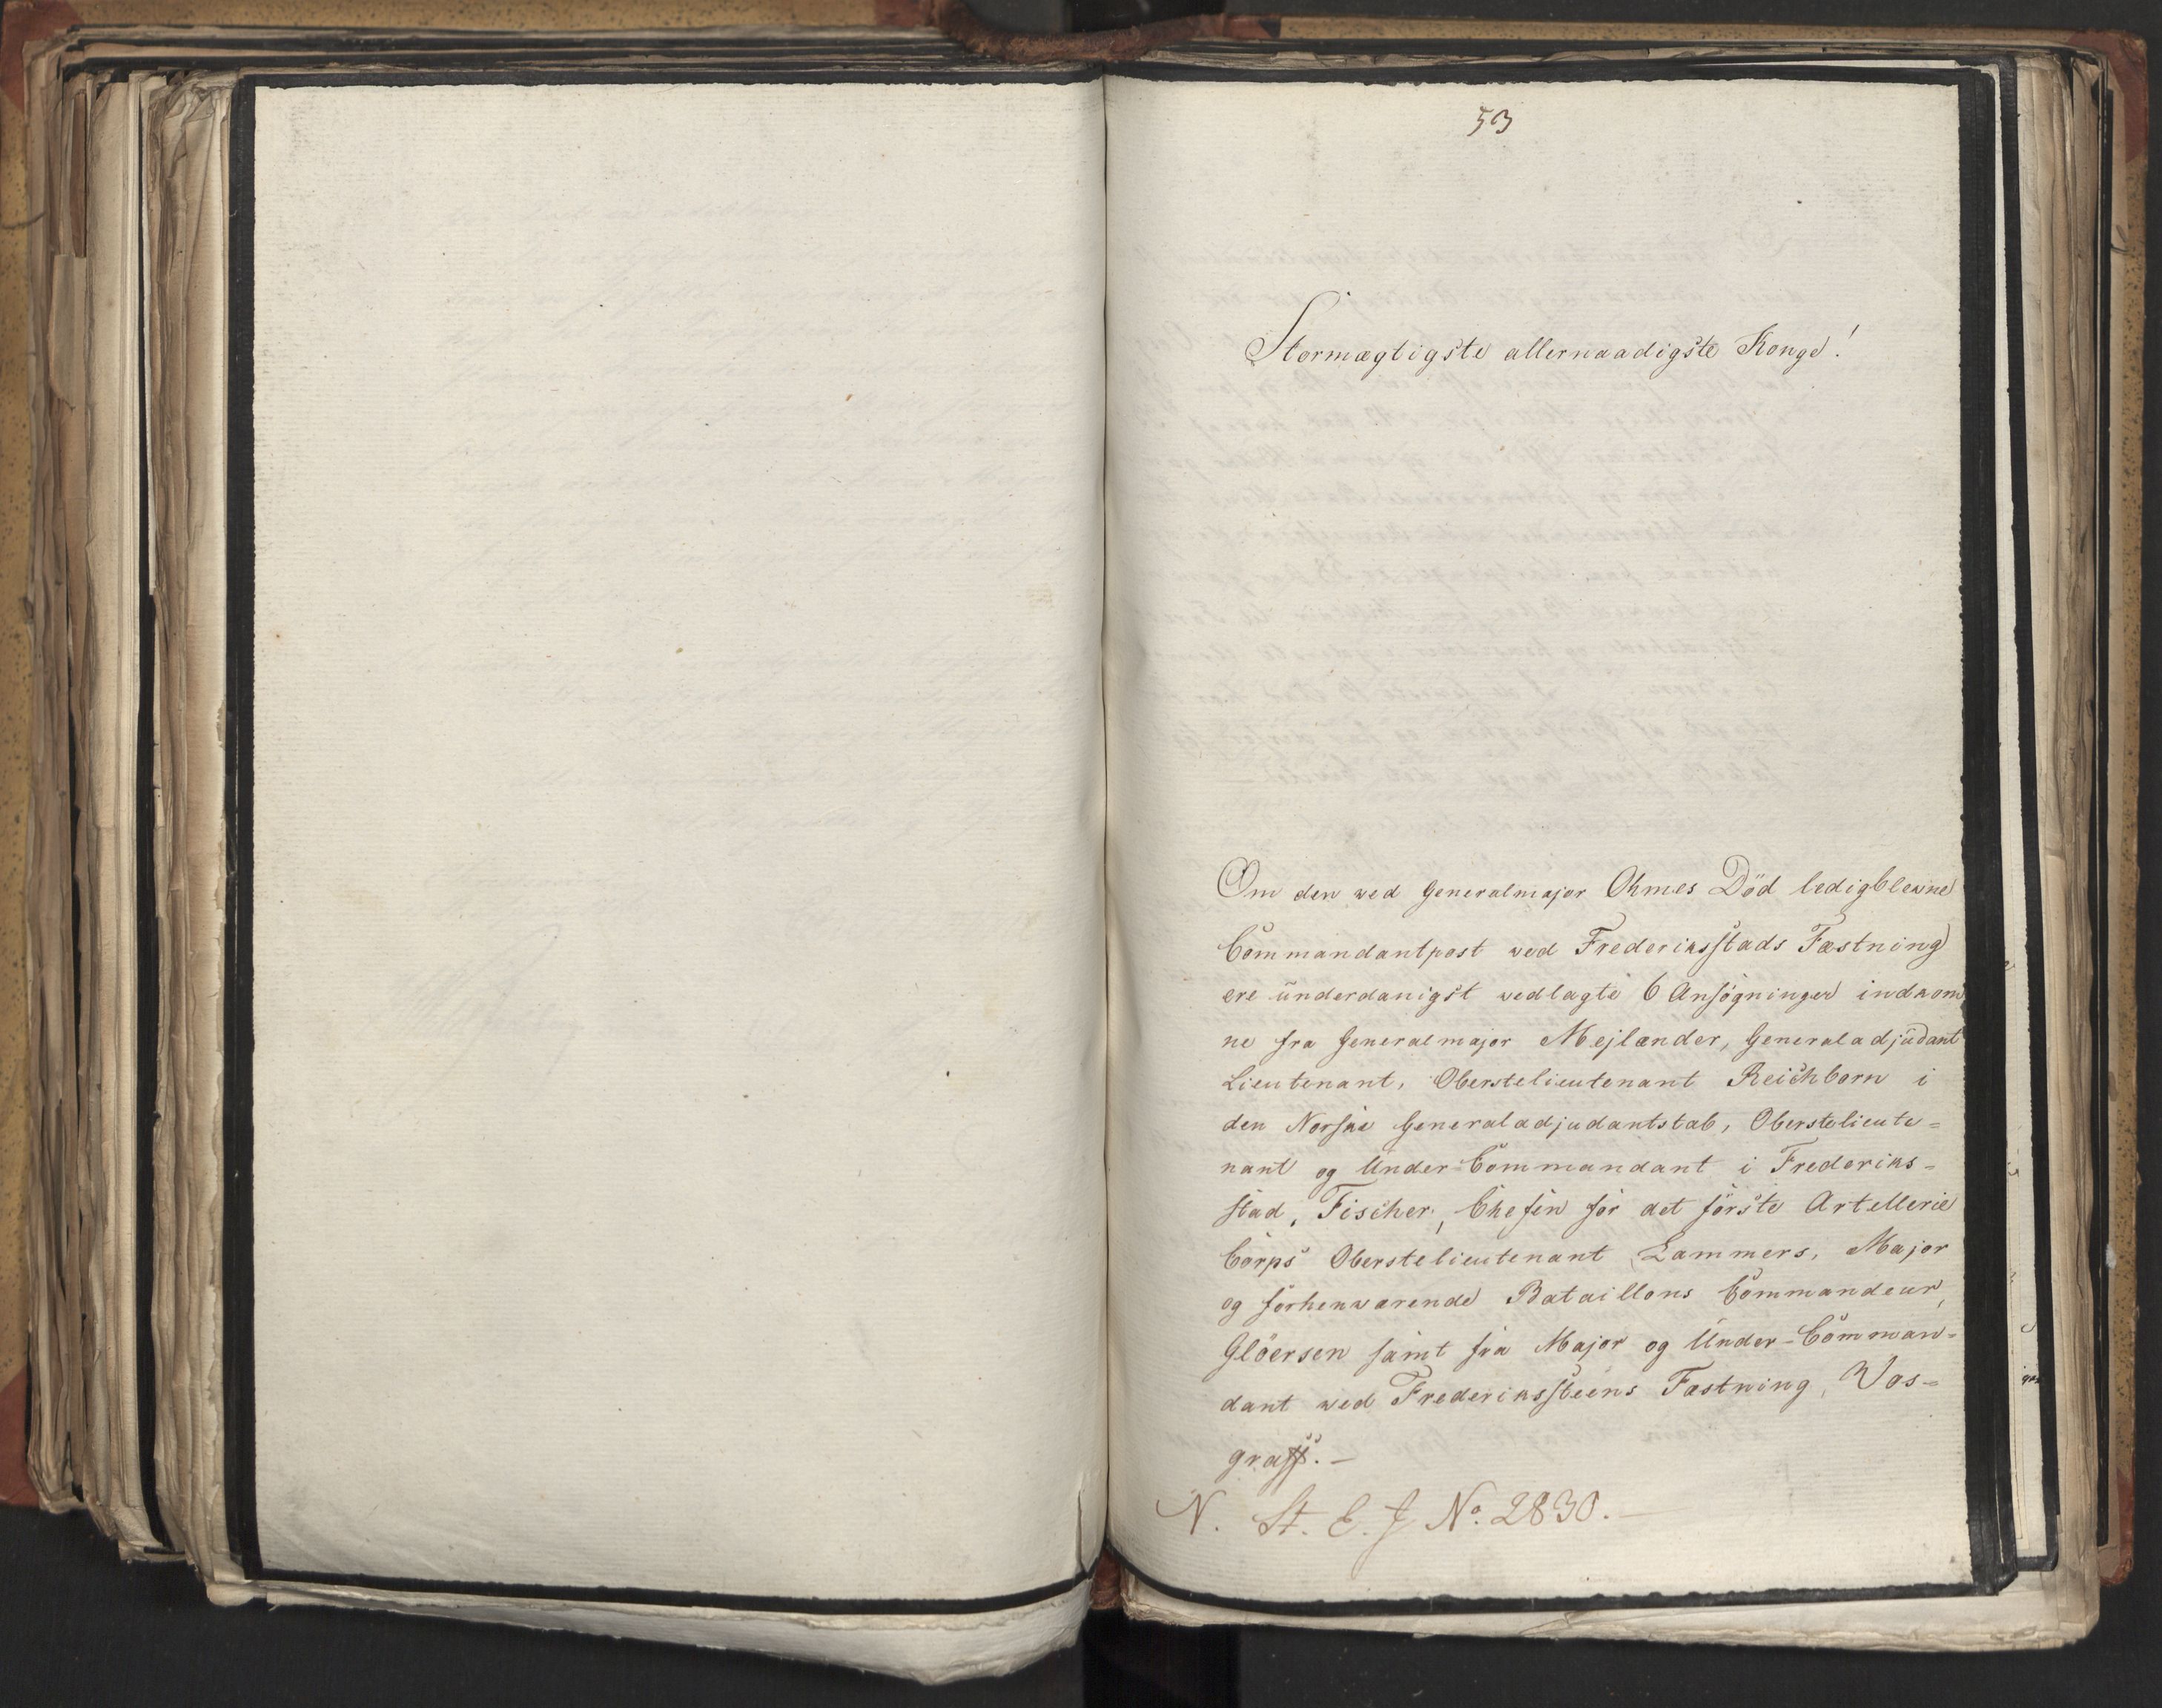 53
Stormægtigste allernaadigste Konge!
Om den ved Generalmajor Ohmes Död ledigblevne
Commandantpost ved Frederiksstads Fæstning
ere underdanigst vedlagte 6 Ansögninger indkom
ne fra Generalmajor Mejlænder, Generaladjudant
Lieutenant, Oberstelieutenant Reichborn i
den Norske Generaladjudantstab, Oberstelieute=
nant og Under-Commandant i Frederiks=
stad, Fischer, Chefen for det förste Artellerie
Corps Oberstelieutenant Lammers, Major
og forhenværende Bataillons Commandeur,
Glöersen samt fra Major og Under-Comman=
dant ved Frederikssteens Fæstning, Vos=
graff.-
N. St. E. J No. 2830.-